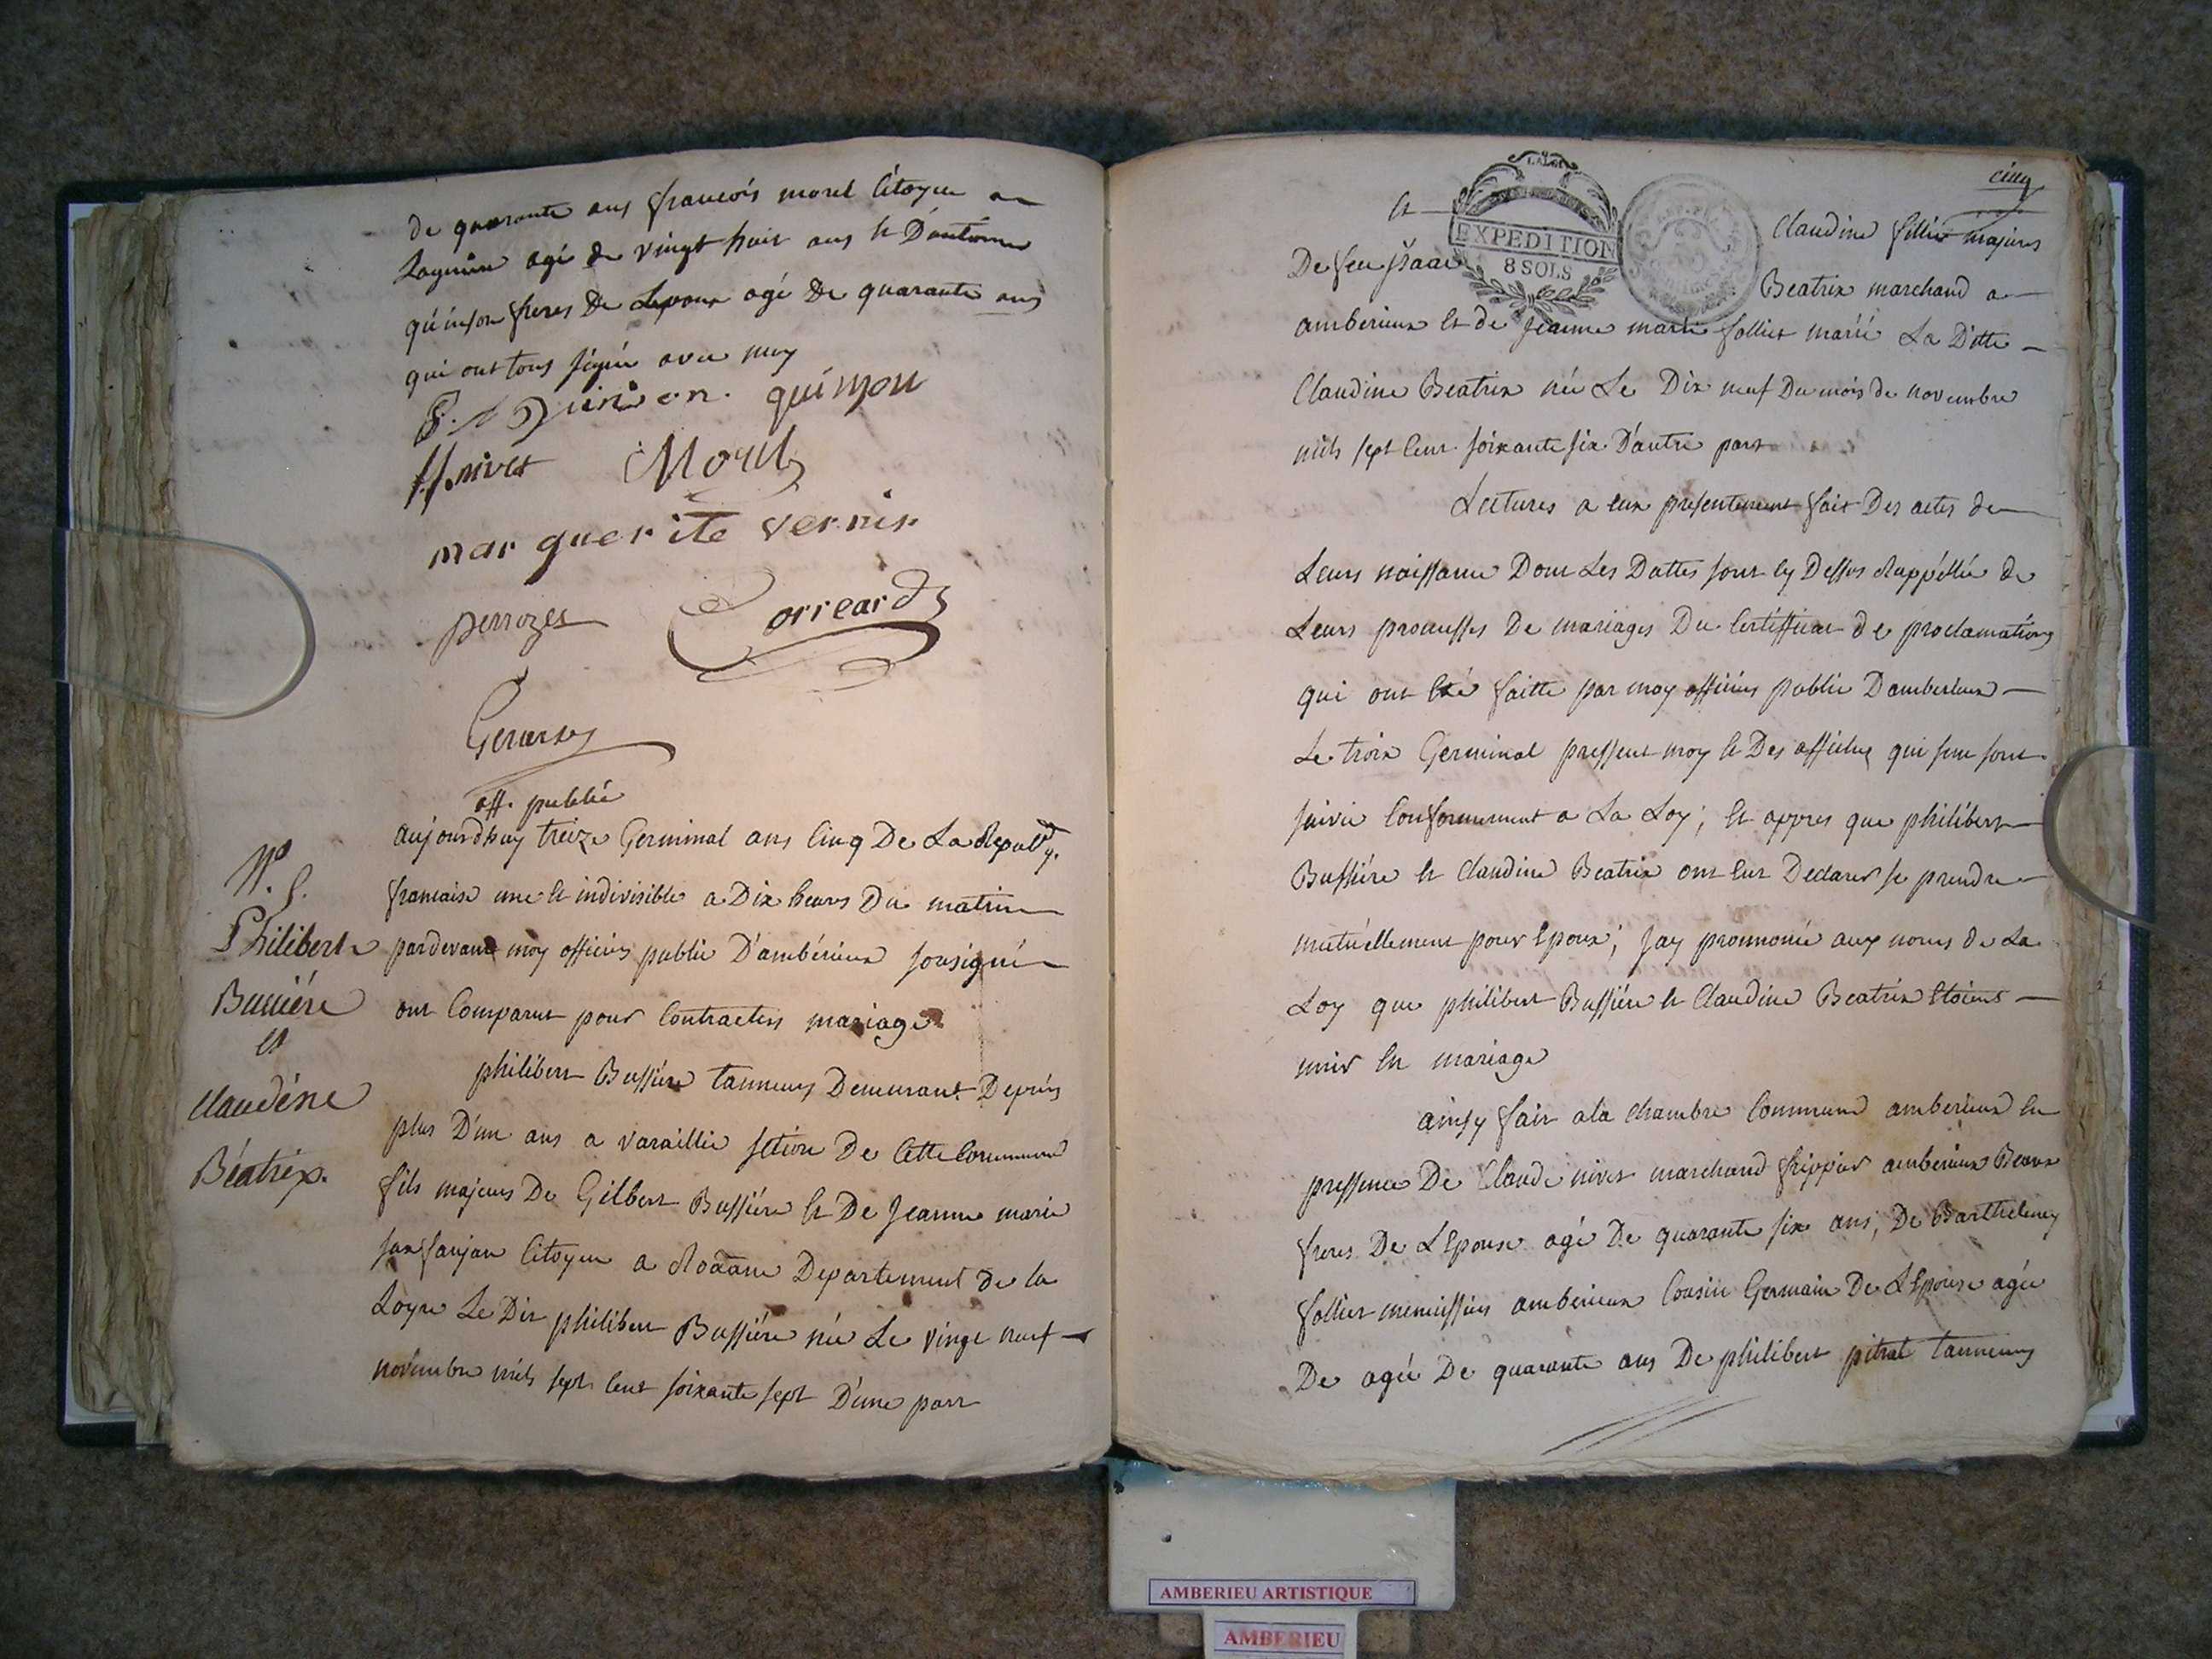 de quarante ans francois morel Citoyen a
Lagnieu agé de vingt huit ans et D'antoine
quinson freres De Lepoux agé De quarante ans
qui ont tous signée avec moy
quinson
nivet Morel
marguerite vernis
perrozet orreard
Gerarset
off. public
N°
Philibert
Bussiére
et
Claudine
Béatrix.
aujourd'huy treize Germinal ans Cinq De La Republ.
francaise une et indivisible a Dix heures Du matin
pardevant moy officies public D'ambérieux sousigné
ont Comparut pour Contracters mariage
philibert Bussiére tanneurs Demeurant Depuis
plus D'un ans a varaillie setion De Cette Commune
fils majeurs De Gilbert Bussiére et De Jeanne marie
Citoyen a Roāane Departement de la
Loyre Le Dit philibert Bussiére née Le vingt neuf
novembre mils sept Cent soixante sept D'une part
cinq
LA LOI
EXPEDITION
8 SOLS
et Claudine fillie majeurs
De feu jsaac Beatrix marchand a
amberieux et de jeanne marie folliet marié La Ditte
Claudine Beatrix née Le Dix neuf Du mois de novembre
mils sept Cent soixante six D'autre part
Lectures a eux presentement fait Des actes de
Leurs naissance Dont Les Dattes sont Cy Dessus Rappéllée de
Leurs promesses De mariages Du Certifficat de proclamations
qui ont Eté faitte par moy officies public D'amberieux
Le trois Germinal pressent moy et Des affiches qui sen sont
suivie Conformement a La Loy; et appres que philibert
Bussiére et Claudine Beatrix ont Eut Declarer se prendre
mutuéllement pour Epoux; jay pronnoncé aux noms de La
Loy que philibert Bussiére et Claudine Beatrix Etoient
unir En mariage
ainsy fait a la Chambre Commune amberieux En
pressence De Claude nivet marchand frippier amberieux Beaux
freres De LEpouse agé De quarante six ans, De Barthelemy
folliet menuissies amberieux Cousin Germain De LEpouse agée
De agée De quarante ans De philibert pitrat tanneurs
AMBERIEU ARTISTIQUE
AMBERIEU